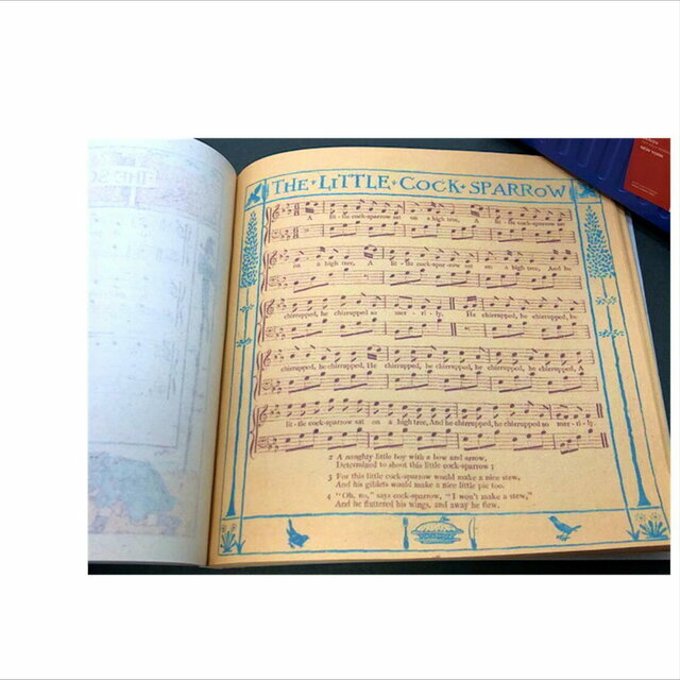 THE · LITTLE · COCK · SPARROW
A lit-tle cock-sparrow sat on a high tree, A lit-tle cock-sparrow sat
on a high tree, A lit-tle cock-spar-row sat on a high tree, And he
chirrupped, he chirrupped so mer-ri-ly. He chirrupped, he chirrupped, he
chirrupped, he chirrupped, He chirrupped, he chirrupped, he chirrupped, he chirrupped, A
lit-tle cock-sparrow sat on a high tree, And he chirrupped, he chirrupped so mer-ri-ly.
2 A naughty little boy with a bow and arrow,
Determined to shoot this little cock-sparrow;
3 For this little cock-sparrow would make a nice stew,
And his giblets would make a nice little pie too.
4 "Oh, no," says cock-sparrow, "I won't make a stew,"
And he fluttered his wings, and away he flew.
NEW YORK